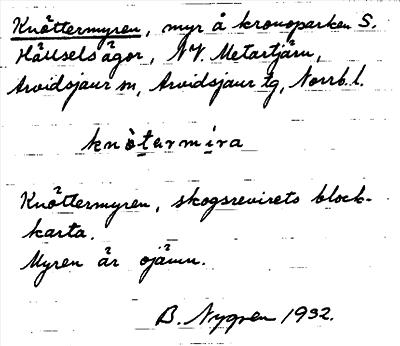 Knöttermyren, myr å kronoparken S.
Hällselsågor, NV. Metartjärn,
Arvidsjaur sn, Arvidsjaur tg, Norrb. l.
knötarmira
Knöttermyren, skogsrevirets block-
karta.
Myren är ojämn.
B. Nygren 1932.